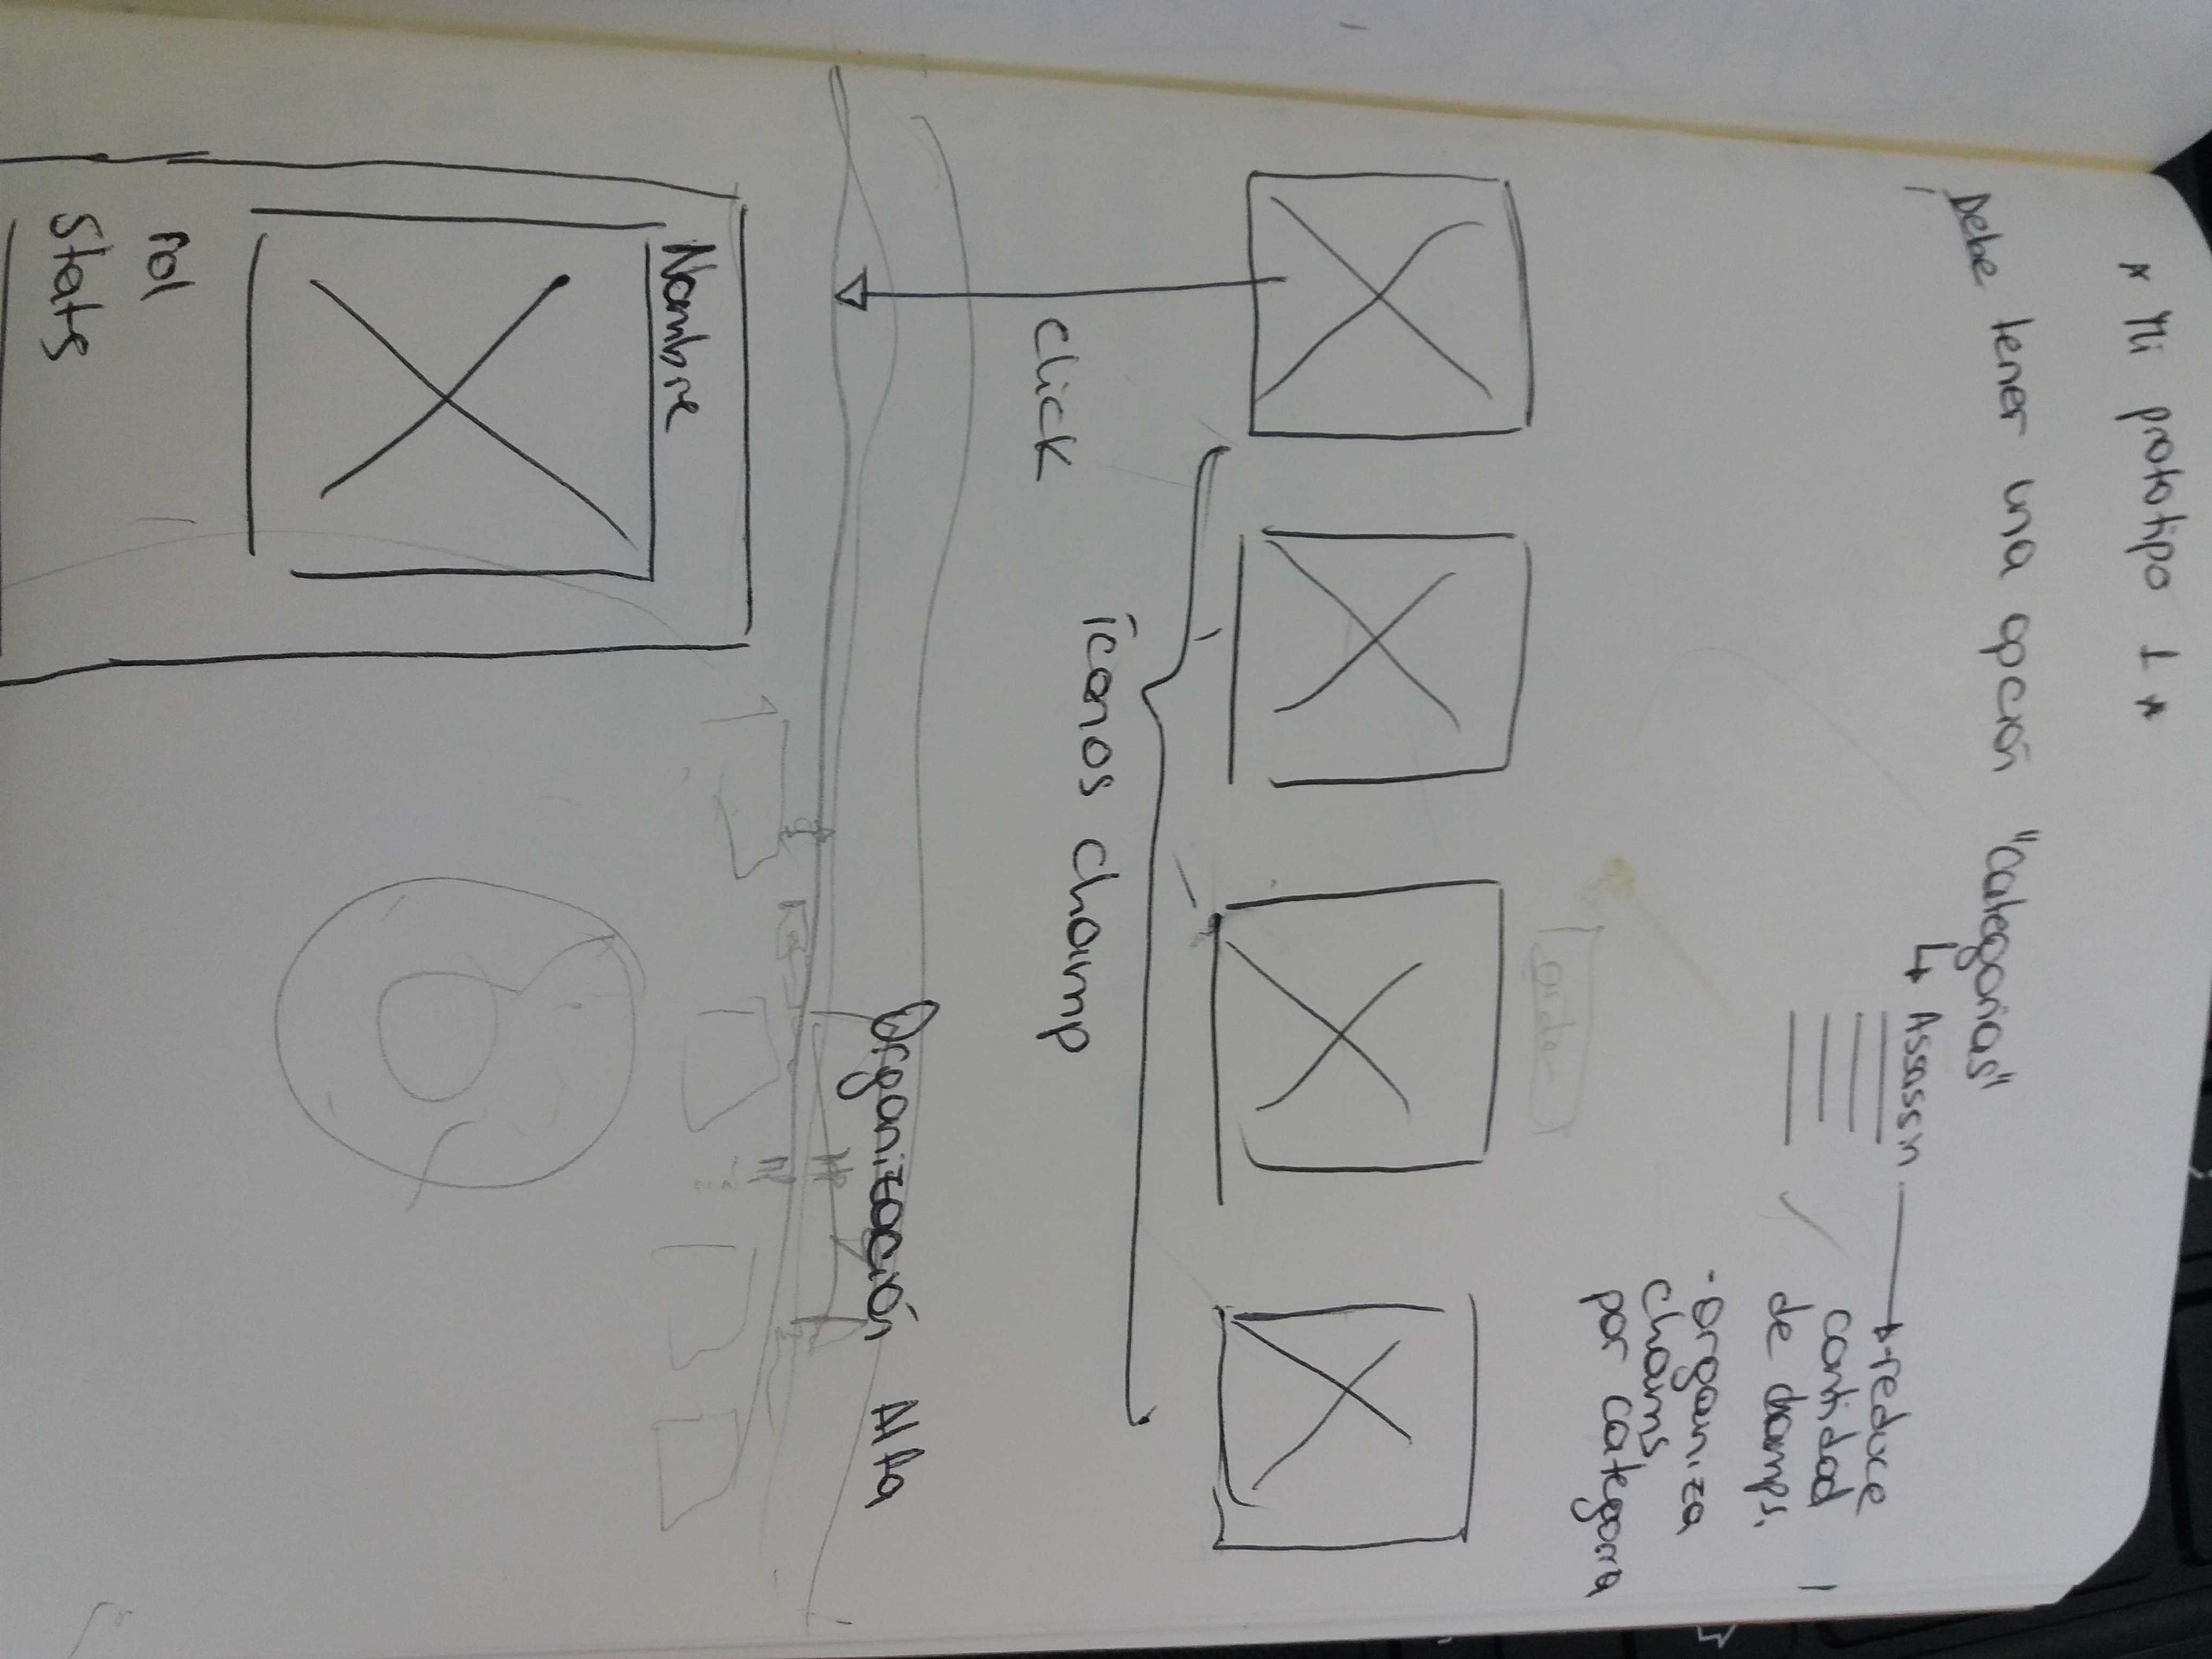 * Mi prototipo 1 *
Debe tener una opción "categorías"
↳ Assassin → - reduce
cantidad
de champs.
- organiza
chams
por categoria
orden
íconos champ
click
Organización Alfa
Nombre
rol
Stats